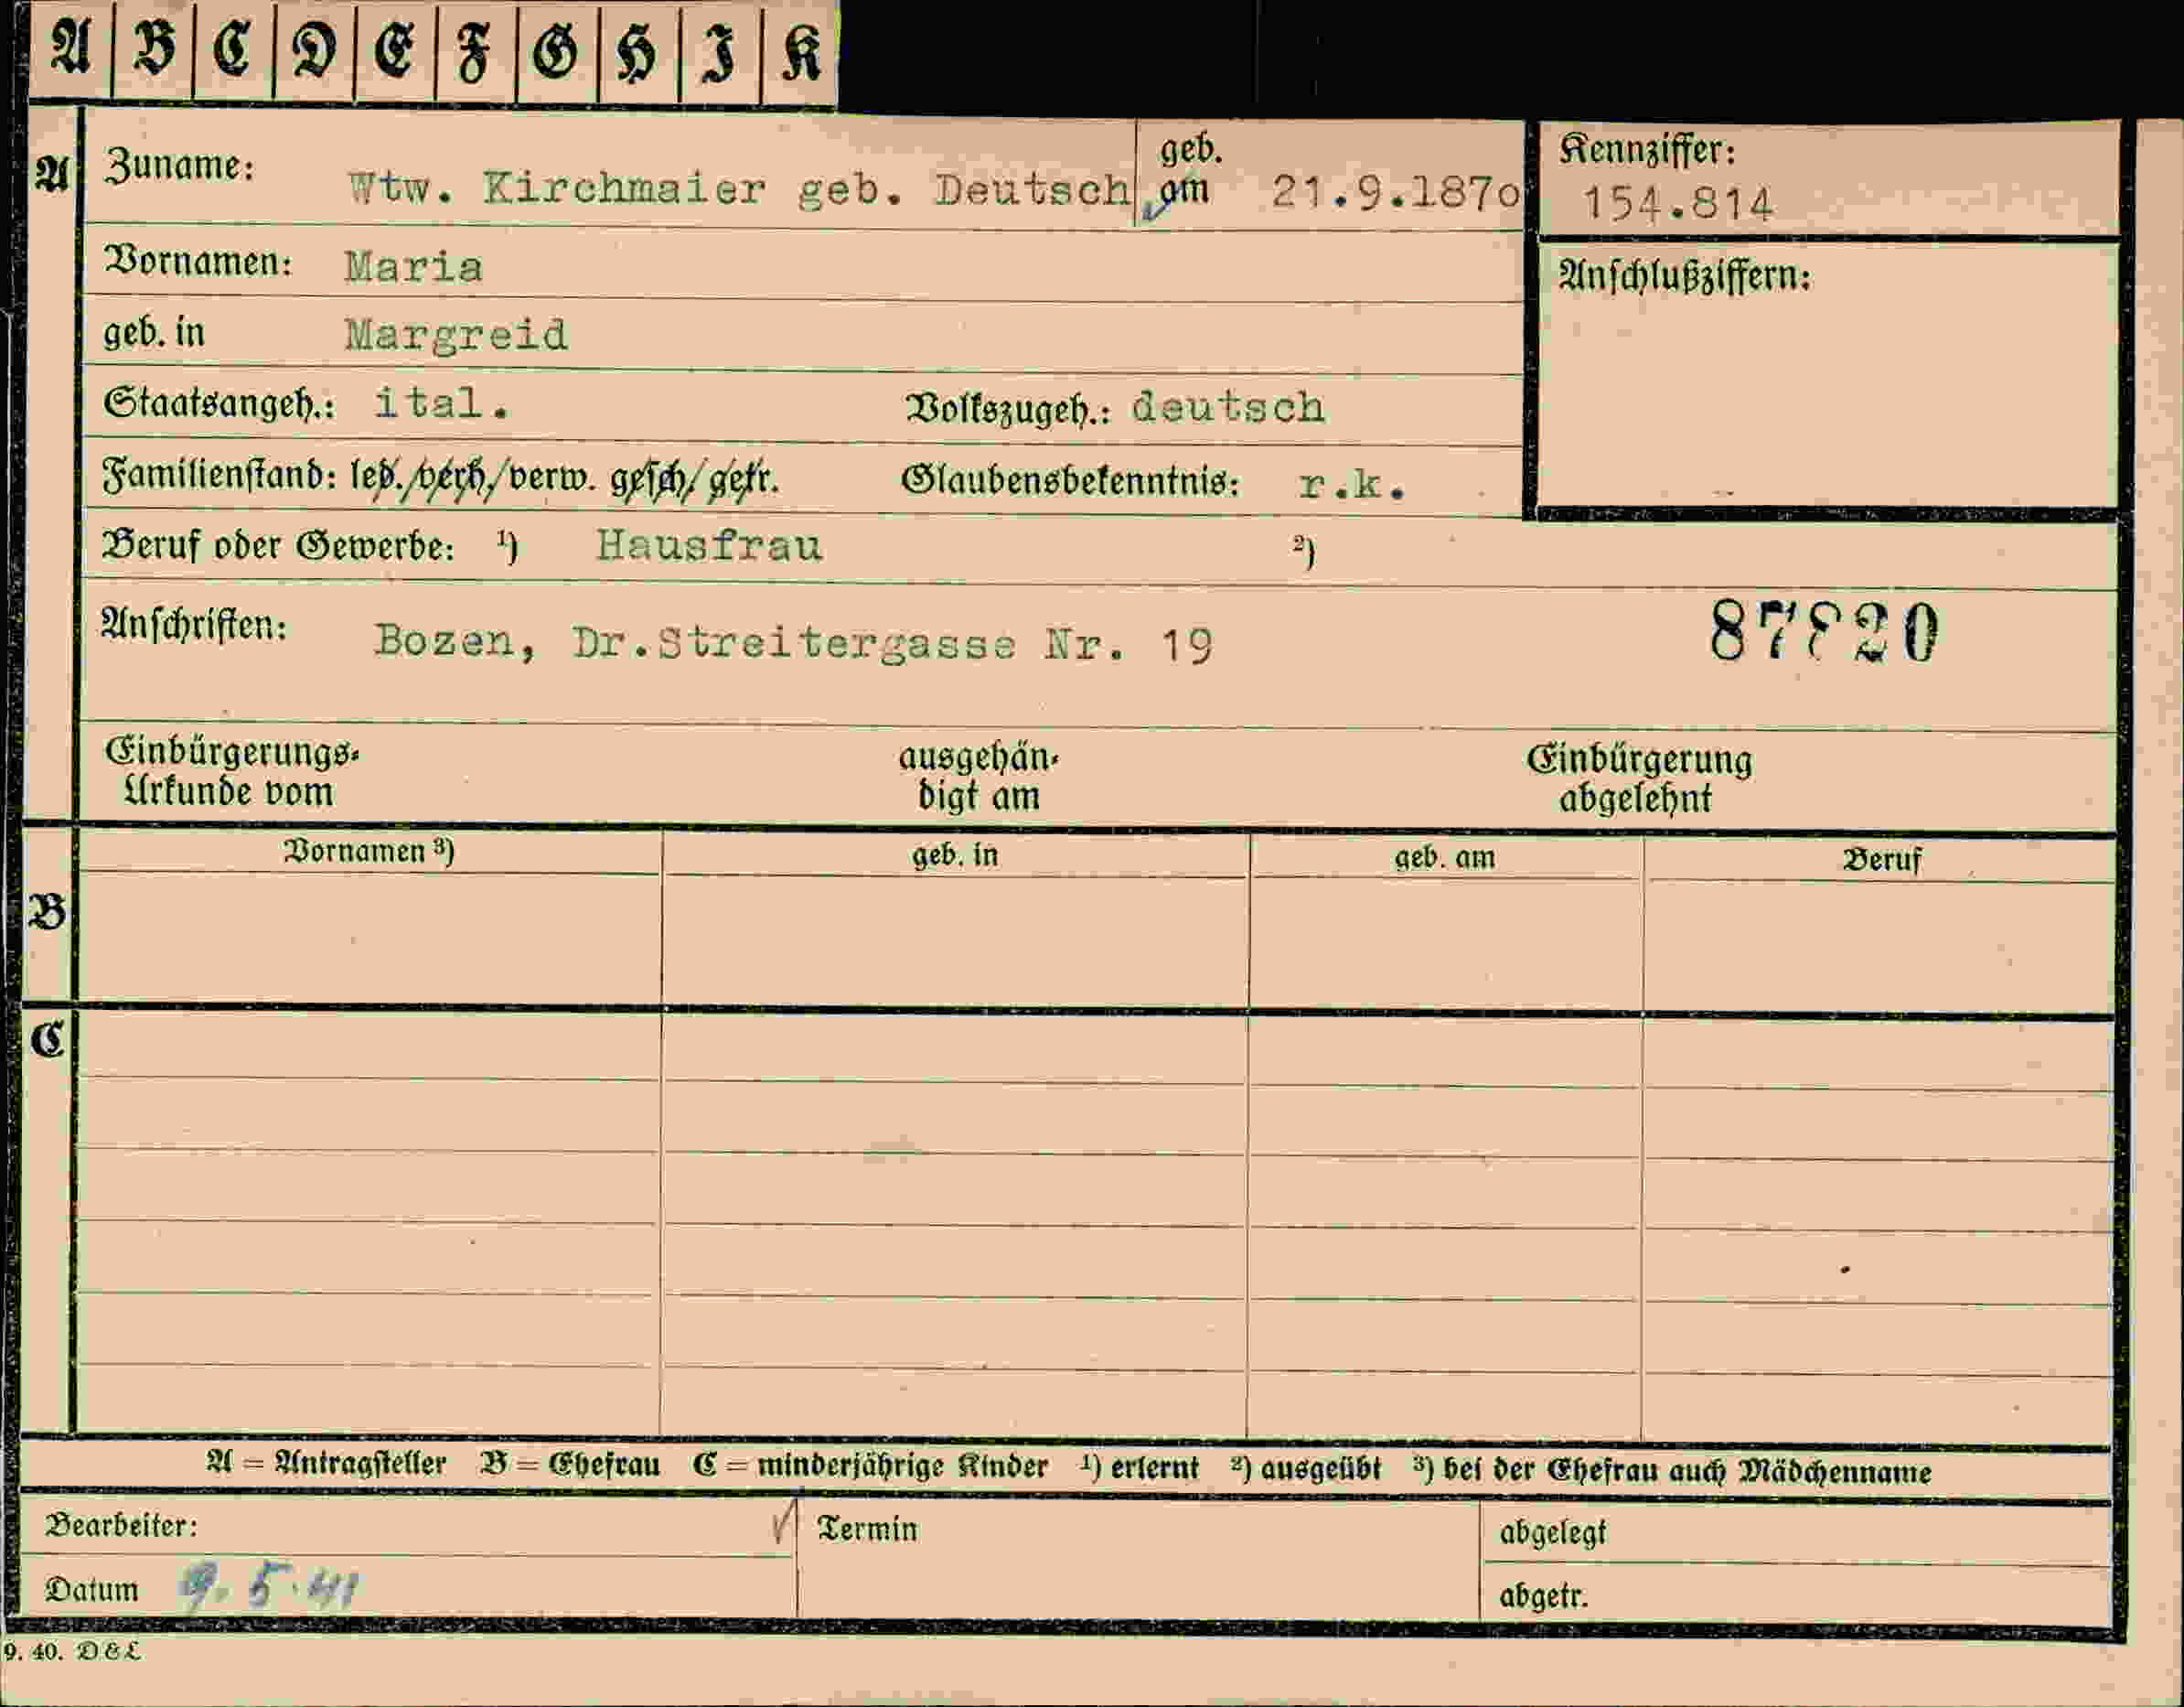 A B C D E F G H I K
A Zuname: Wtw. Kirchmaier geb. Deutsch geb. am 21.9.1870 Kennziffer: 154.814
Vornamen: Maria Anschlußziffern:
geb. in Margreid
Staatsangeh.: ital. Volkszugeh.: deutsch
Familienstand: led./verh./verw. gesch/getr. Glaubensbekenntnis: r.k.
Beruf oder Gewerbe: 1) Hausfrau 2)
Anschriften: Bozen, Dr.Streitergasse Nr. 19 87820
Einbürgerungs- ausgehän- Einbürgerung
Urkunde vom digt am abgelehnt
Vornamen 3) geb. in geb. am Beruf
B
C
A = Antragsteller B = Ehefrau C = minderjährige Kinder 1) erlernt 2) ausgeübt 3) bei der Ehefrau auch Mädchenname
Bearbeiter: Termin abgelegt
Datum 9.5.41 abgetr.
9. 40. D&L